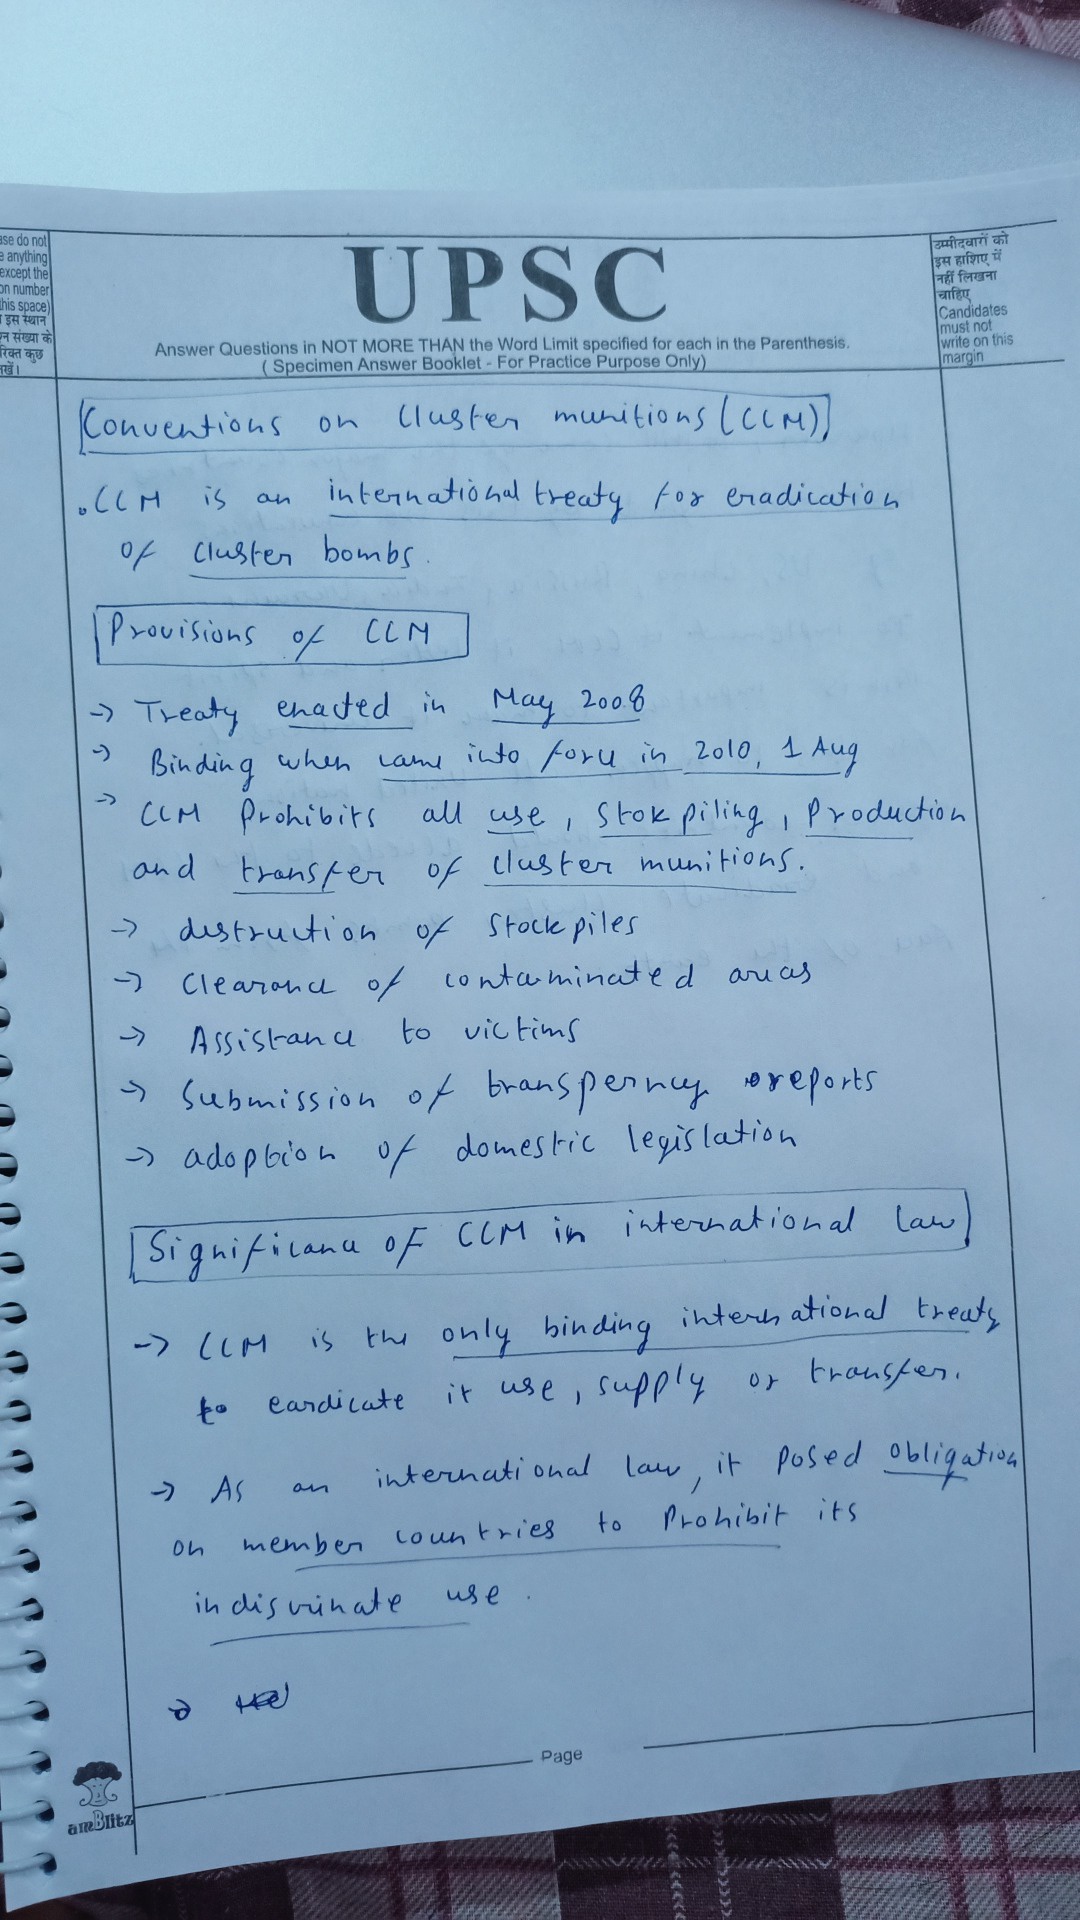 ase do not
e anything
except the
on number
this space)
इस स्थान
न संख्या के
रिक्त कुछ
खें।
UPSC
Answer Questions in NOT MORE THAN the Word Limit specified for each in the Parenthesis.
( Specimen Answer Booklet - For Practice Purpose Only)
उम्मीदवारों को
इस हाशिए में
नहीं लिखना
चाहिए
Candidates
must not
write on this
margin
Conventions on Cluster munitions (CCM)
. CCM is an international treaty for eradication
of cluster bombs.
Provisions of CCM
→ Treaty enacted in May 2008
→ Binding when came into force in 2010, 1 Aug
→ CCM Prohibits all use, Stokpiling, Production
and transfer of cluster munitions.
→ destruction of Stockpiles
→ Clearance of contaminated areas
→ Assistance to victims
→ Submission of transperncy reports
→ adoption of domestic legislation
Significance of CCM in international law
→ CCM is the only binding international treaty
to eardicate it use, supply or transfer.
→ As an international law, it posed obligation
on member countries to Prohibit its
indiscrinate use.
Page
amBlitz